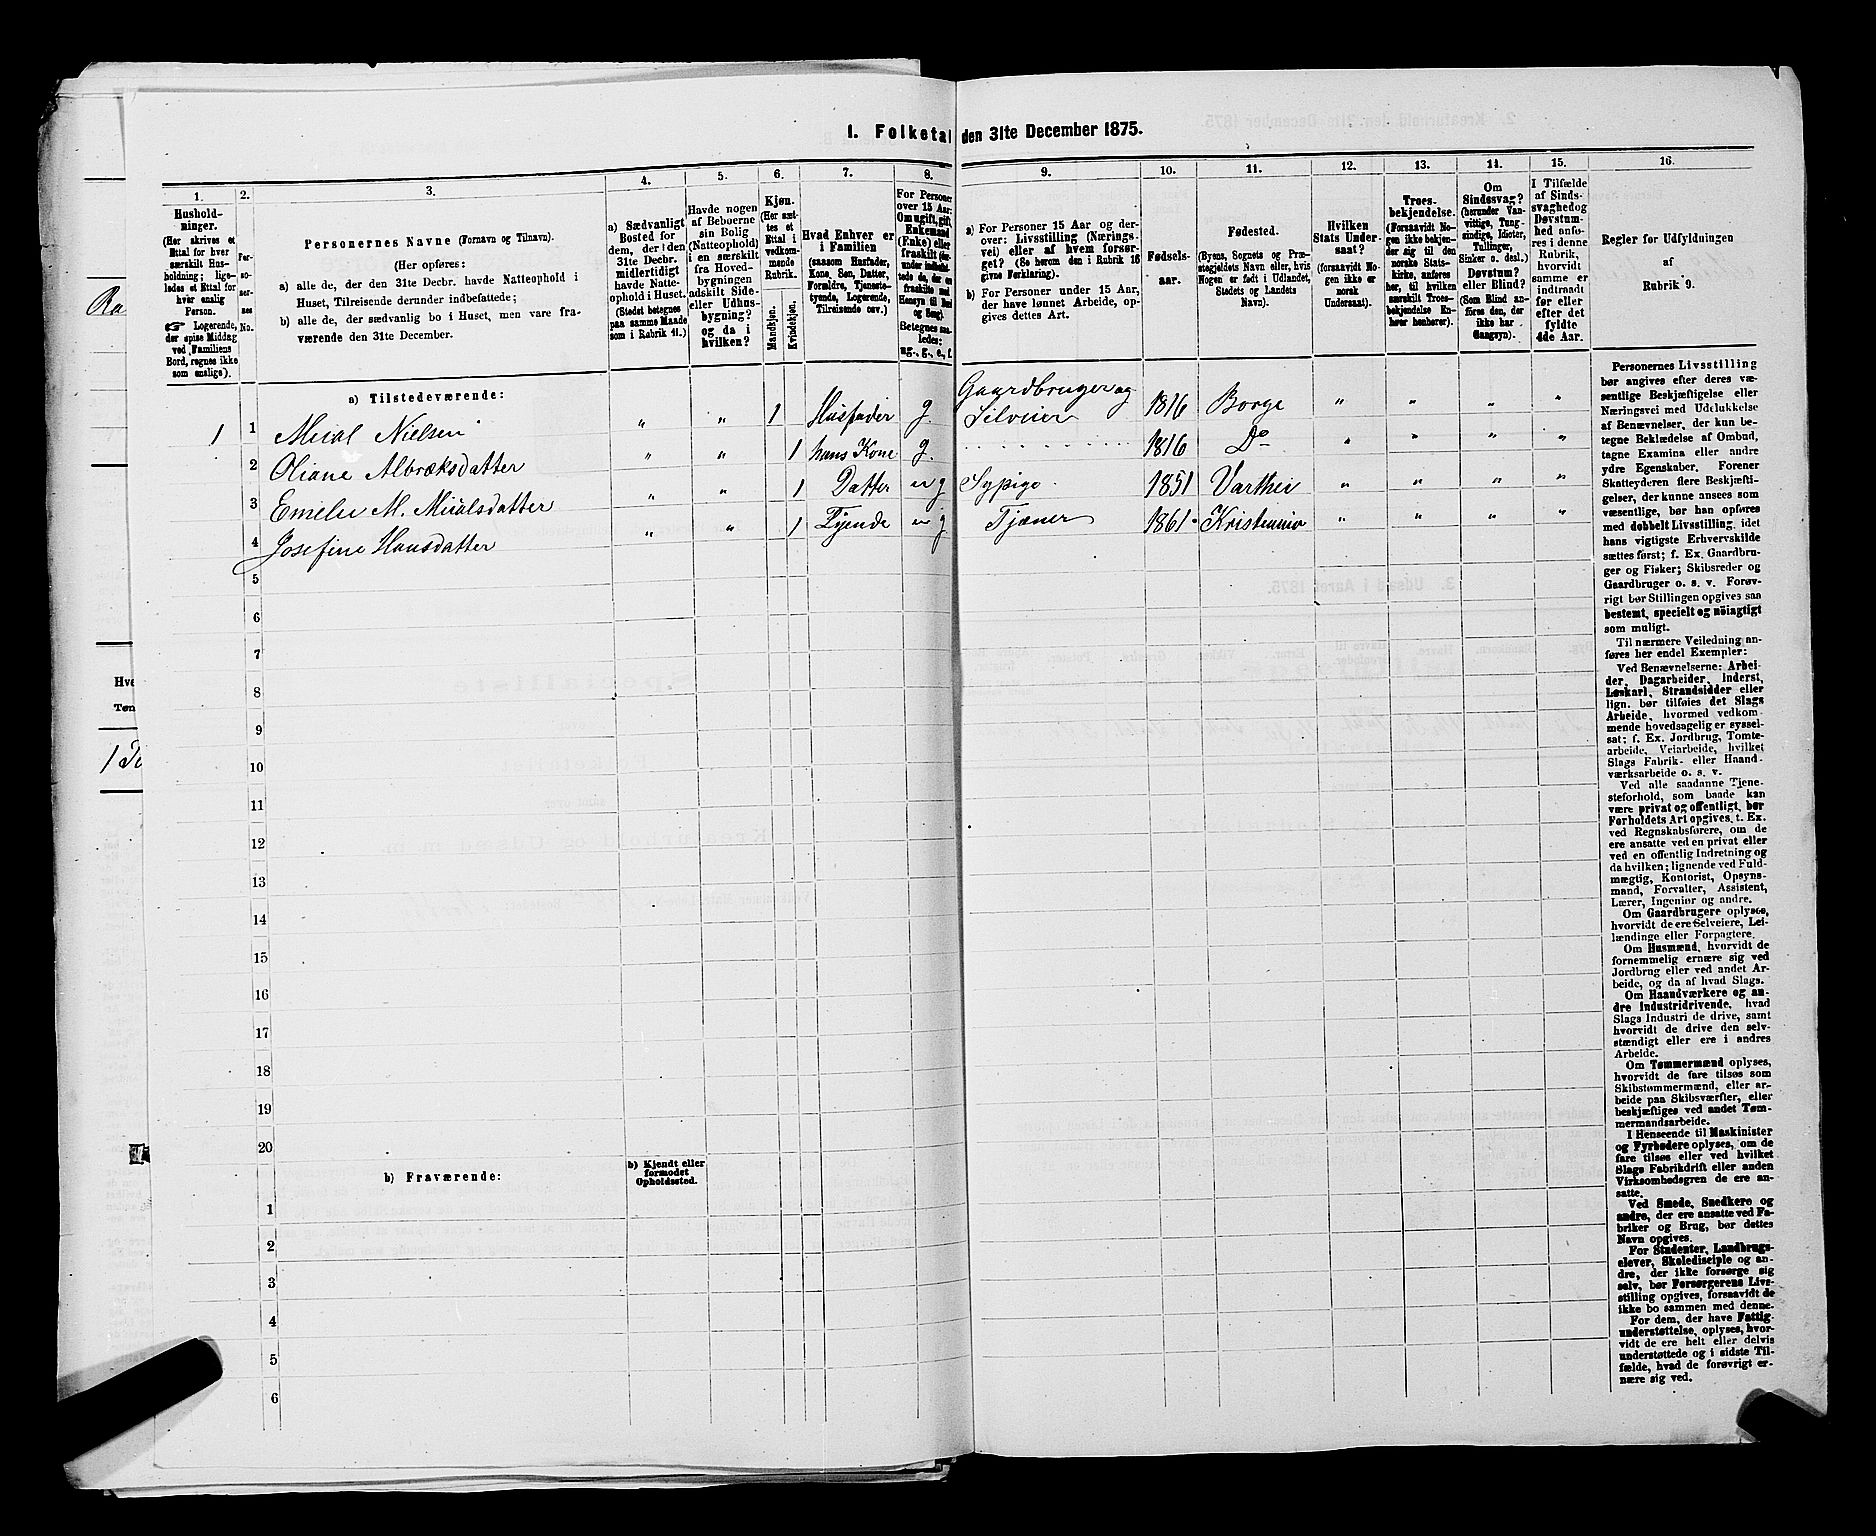 1. Folketal den 31te December 1875.
1. 2. 3. 4. 5. 6. 7. 8. 9. 10. 11. 12. 13. 14. 15. 16.
Hushold-
ninger.
(Her skrives et
Ettal for hver
særskilt Hus-
holdning; lige-
ledes et Ettal for
hver enslig
Person.
☞ Logerende,
der spise Middag
ved Familiens
Bord, regnes ikke
som enslige).
Per-
so-
ner-
nes
No.
Personernes Navne (Fornavn og Tilnavn).
(Her opføres:
a) alle de, der den 31te Decbr. havde Natteophold i
Huset, Tilreisende derunder indbefattede;
b) alle de, der sædvanlig bo i Huset, men vare fra-
værende den 31te December.
a) Sædvanligt
Bosted for
dem, der i den
31te Decbr.
midlertidigt
havde Natte-
ophold i Huset.
(Stedet betegnes
paa samme Maade
som i Rubrik 11.)
Havde nogen
af Beboerne
sin Bolig
(Natteophold)
i en særskilt
fra Hoved-
bygningen
adskilt Side-
eller Udhus-
bygning?
og da i
hvilken?
Kjøn.
(Her sæt-
tes et
Ettal i
vedkom-
mende
Rubrik.
Mandkjøn.
Kvindekjøn.
Hvad Enhver er
i Familien
(saasom Husfader,
Kone, Søn, Datter,
Forældre, Tjeneste-
tyende, Logerende,
Tilreisende osv.)
For Personer
over 15 Aar:
Om ugift, gift,
Enkemand
(Enke) eller
fraskilt
Betegnes saa-
ledes:
ug., g., e., f.
a) For Personer 15 Aar og der-
over: Livsstilling (Nærings-
vei) eller af hvem forsør-
get? (Se herom den i Rubrik 16
givne Førklaring).
b) For Personer under 15 Aar,
der have lønnet Arbeide, op-
gives dettes Art.
Fødsels-
aar.
Fødested.
(Byens, Sognets og Præ-
stegjeldets Navn eller, hvis
Nogen er født i Udlandet,
Stedets og Landets
Navn).
Hvilken
Stats Under-
saat?
(forsaavidt No-
gen ikke er
norsk
Undersaat).
Troes-
bekjendelse.
(Forsaavidt No-
gen ikke bekjen-
der sig til den
norske Stats-
kirke, anføres
her, til hvilken
særskilt Troes-
bekjendelse En-
hver henhører).
Om
Sindssvag?
(herunder Van-
vittige, Tung-
sindige, Idioter,
Tullinger,
Sinker o. desl.)
Døvstum?
eller Blind?
(Som Blind an-
føres den, der
ikke har
Gangsyn).
I Tilfælde
af Sinds-
svaghed og
Døvstum-
hed anfø-
res i denne
Rubrik,
hvorvidt
samme er
indtraadt
før eller
efter det
fyldte
4de Aar.
Regler for Udfyldningen
af
Rubrik 9.
a) Tilstedeværende:
1 1 Meial Nielsen „ „ 1 Husfader g. Gaardbruger og Selveier 1816 Borge „ „ „ „
2 Oliane Albræksdatter „ „ 1 hans Kone g. 1816 Do „ „ „
3 Emelie M. Meialsdatter „ „ 1 Datter u g Sypige 1851 Varthei „ „ „ „
4 Josefine Hansdatter „ „ 1 Tyende u g Tjæner 1861 Kristiania „ „ „ „
5
6
7
8
9
10
11
12
13
14
15
16
17
18
19
20
b) Fraværende:
b) Kjendt eller
formodet
Opholdssted.
1
2
3
4
5
6
Personernes Livsstilling
bør angives efter deres væ-
sentlige Beskjæftigelse eller
Næringsvei med Udelukkelse
af Benævnelser, der kun be-
tegne Beklædelse af Ombud,
tagne Examina eller andre
ydre Egenskaber. Forener
Skatteyderen flere Beskjæfti-
gelser, der kunne ansees som
væsentlige, bør han opføres
med dobbelt Livsstilling, idet
hans vigtigste Erhvervskilde
sættes først; f. Ex. Gaardbru-
ger og Fisker; Skibsreder og
Gaardbruger o. s. v. Forøv-
rigt bør Stillingen opgives saa
bestemt, specielt og nöiagtigt
som muligt.
Til nærmere Veiledning an-
føres her endel Exempler:
Ved Benævnelserne: Arbei-
der, Dagarbeider, Inderst,
Løskarl, Strandsidder eller
lign. bør tilføies det Slags
Arbeide, hvormed vedkom-
mende hovedsagelig er syssel-
sat; f. Ex. Jordbrug, Tomte-
arbeide, Veiarbeide, hvilket
Slags Fabrik- eller Haand-
værksarbeide o. s. v.
Ved alle saadanne Tjene-
steforhold, som baade kan
være privat og offentligt, bør
Forholdets Art opgives, t. Ex.
ved Regnskabsførere, om de
ere ansatte ved en privat eller
ved en offentlig Indretning og
da hvilken; lignende ved Fuld-
mægtig, Kontorist, Opsyns-
mand, Forvalter, Assistent,
Lærer, Ingeniør og andre.
Om Gaardbrugere oplyses,
hvorvidt de ere Selveiere, Lei-
lændinge eller Forpagtere.
Om Husmænd, hvorvidt de
fornemmelig ernære sig ved
Jordbrug eller ved andet Ar-
beide, og da af hvad Slags.
Om Haandværkere og an-
dre Industridrivende, hvad
Slags Industri de drive, samt
hvorvidt de drive den selv-
stændigt eller ere i andres
Arbeide.
Om Tømmermænd oplyses,
hvorvidt de fare tilsøs som
Skibstømmermænd, eller ar-
beide paa Skibsværfter, eller
beskjæftiges ved andet Tøm-
mermandsarbeide.
I Henseende til Maskinister
og Fyrbødere oplyses, om de
fare tilsøs eller ved hvilket
Slags Fabrikdrift eller anden
Virksomhedsgren de ere an-
satte.
Ved Smede, Snedkere og
andre, der ere ansatte ved Fa-
briker og Brug, bør dettes
Navn opgives.
For Studenter, Landbrugs-
elever, Skoledisciple og an-
dre, der ikke forsørge sig
selv, bør Forsørgerens Livs-
stilling opgives, forsaavidt de
ikke bo sammen med denne.
For dem, der have Fattig-
understøttelse, oplyses, hvor-
vidt de ere helt eller delvis
understøttede og i sidste Til-
fælde, hvad de forøvrigt er-
nære sig ved.